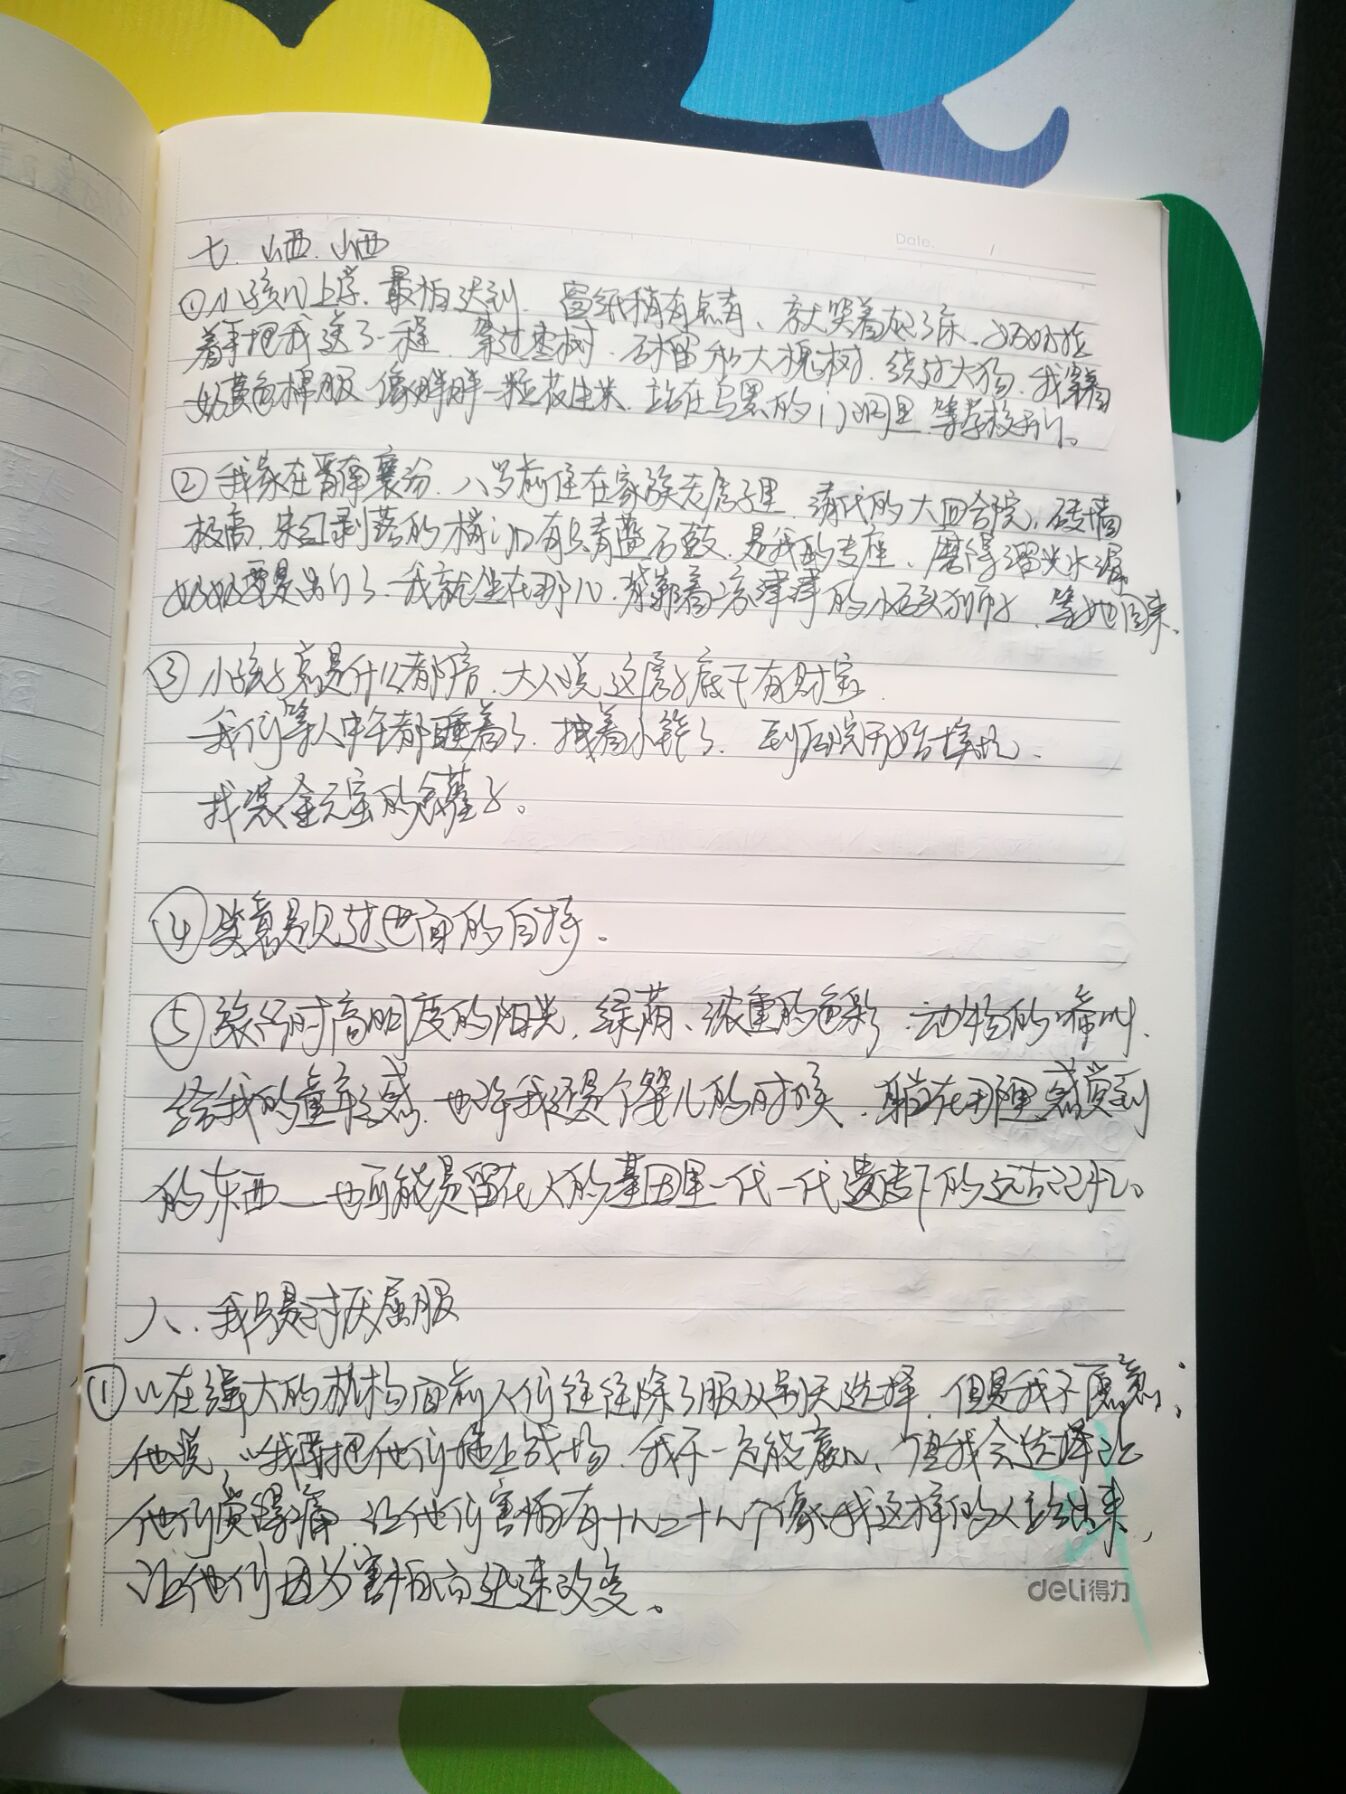 Date. /
七、山西、山西
①小孩儿上学，最怕迟到，窗纸稍有点青，就哭着起了床。奶奶拉
着手把我送了一程，穿过枣树、石榴和大槐树，绕过大狗，我穿着
奶黄色棉服，像胖胖一粒花生米，站在乌黑的门洞里，等学校开门。
②我家在晋南襄汾，八岁前住在家族老房子里，清代的大四合院，砖墙
极高，朱红剥落的梢门口有只青蓝石鼓，是我的专座，磨得溜光水滑，
奶奶要是出门了，我就坐在那儿，背靠着凉津津的小石头狮子，等她回来。
③小孩子总是什么都信，大人说，这房子底下有财宝，
我们等人中午都睡着了，拽着小铲子，到后院开始挖坑，
找装金元宝的罐子。
④笑意是见过世面的自持。
⑤旅行时高明度的阳光，绿荫、浓重的色彩，动物的嘶叫，
给我的童年之感，也许我还是个婴儿的时候，躺在那里感受到
的东西——也可能是留在人的基因里一代一代遗传下的远古记忆。
八、我只是讨厌屈服
①"在强大的机构面前人们往往除了服从别无选择，但是我不愿意；
他说，"我要把他们推上战场，我不一定能赢，但我会选择让
他们觉得痛，让他们害怕有十几二十几个像我这样的人站出来，
让他们因为害怕而迅速改变。
deli得力